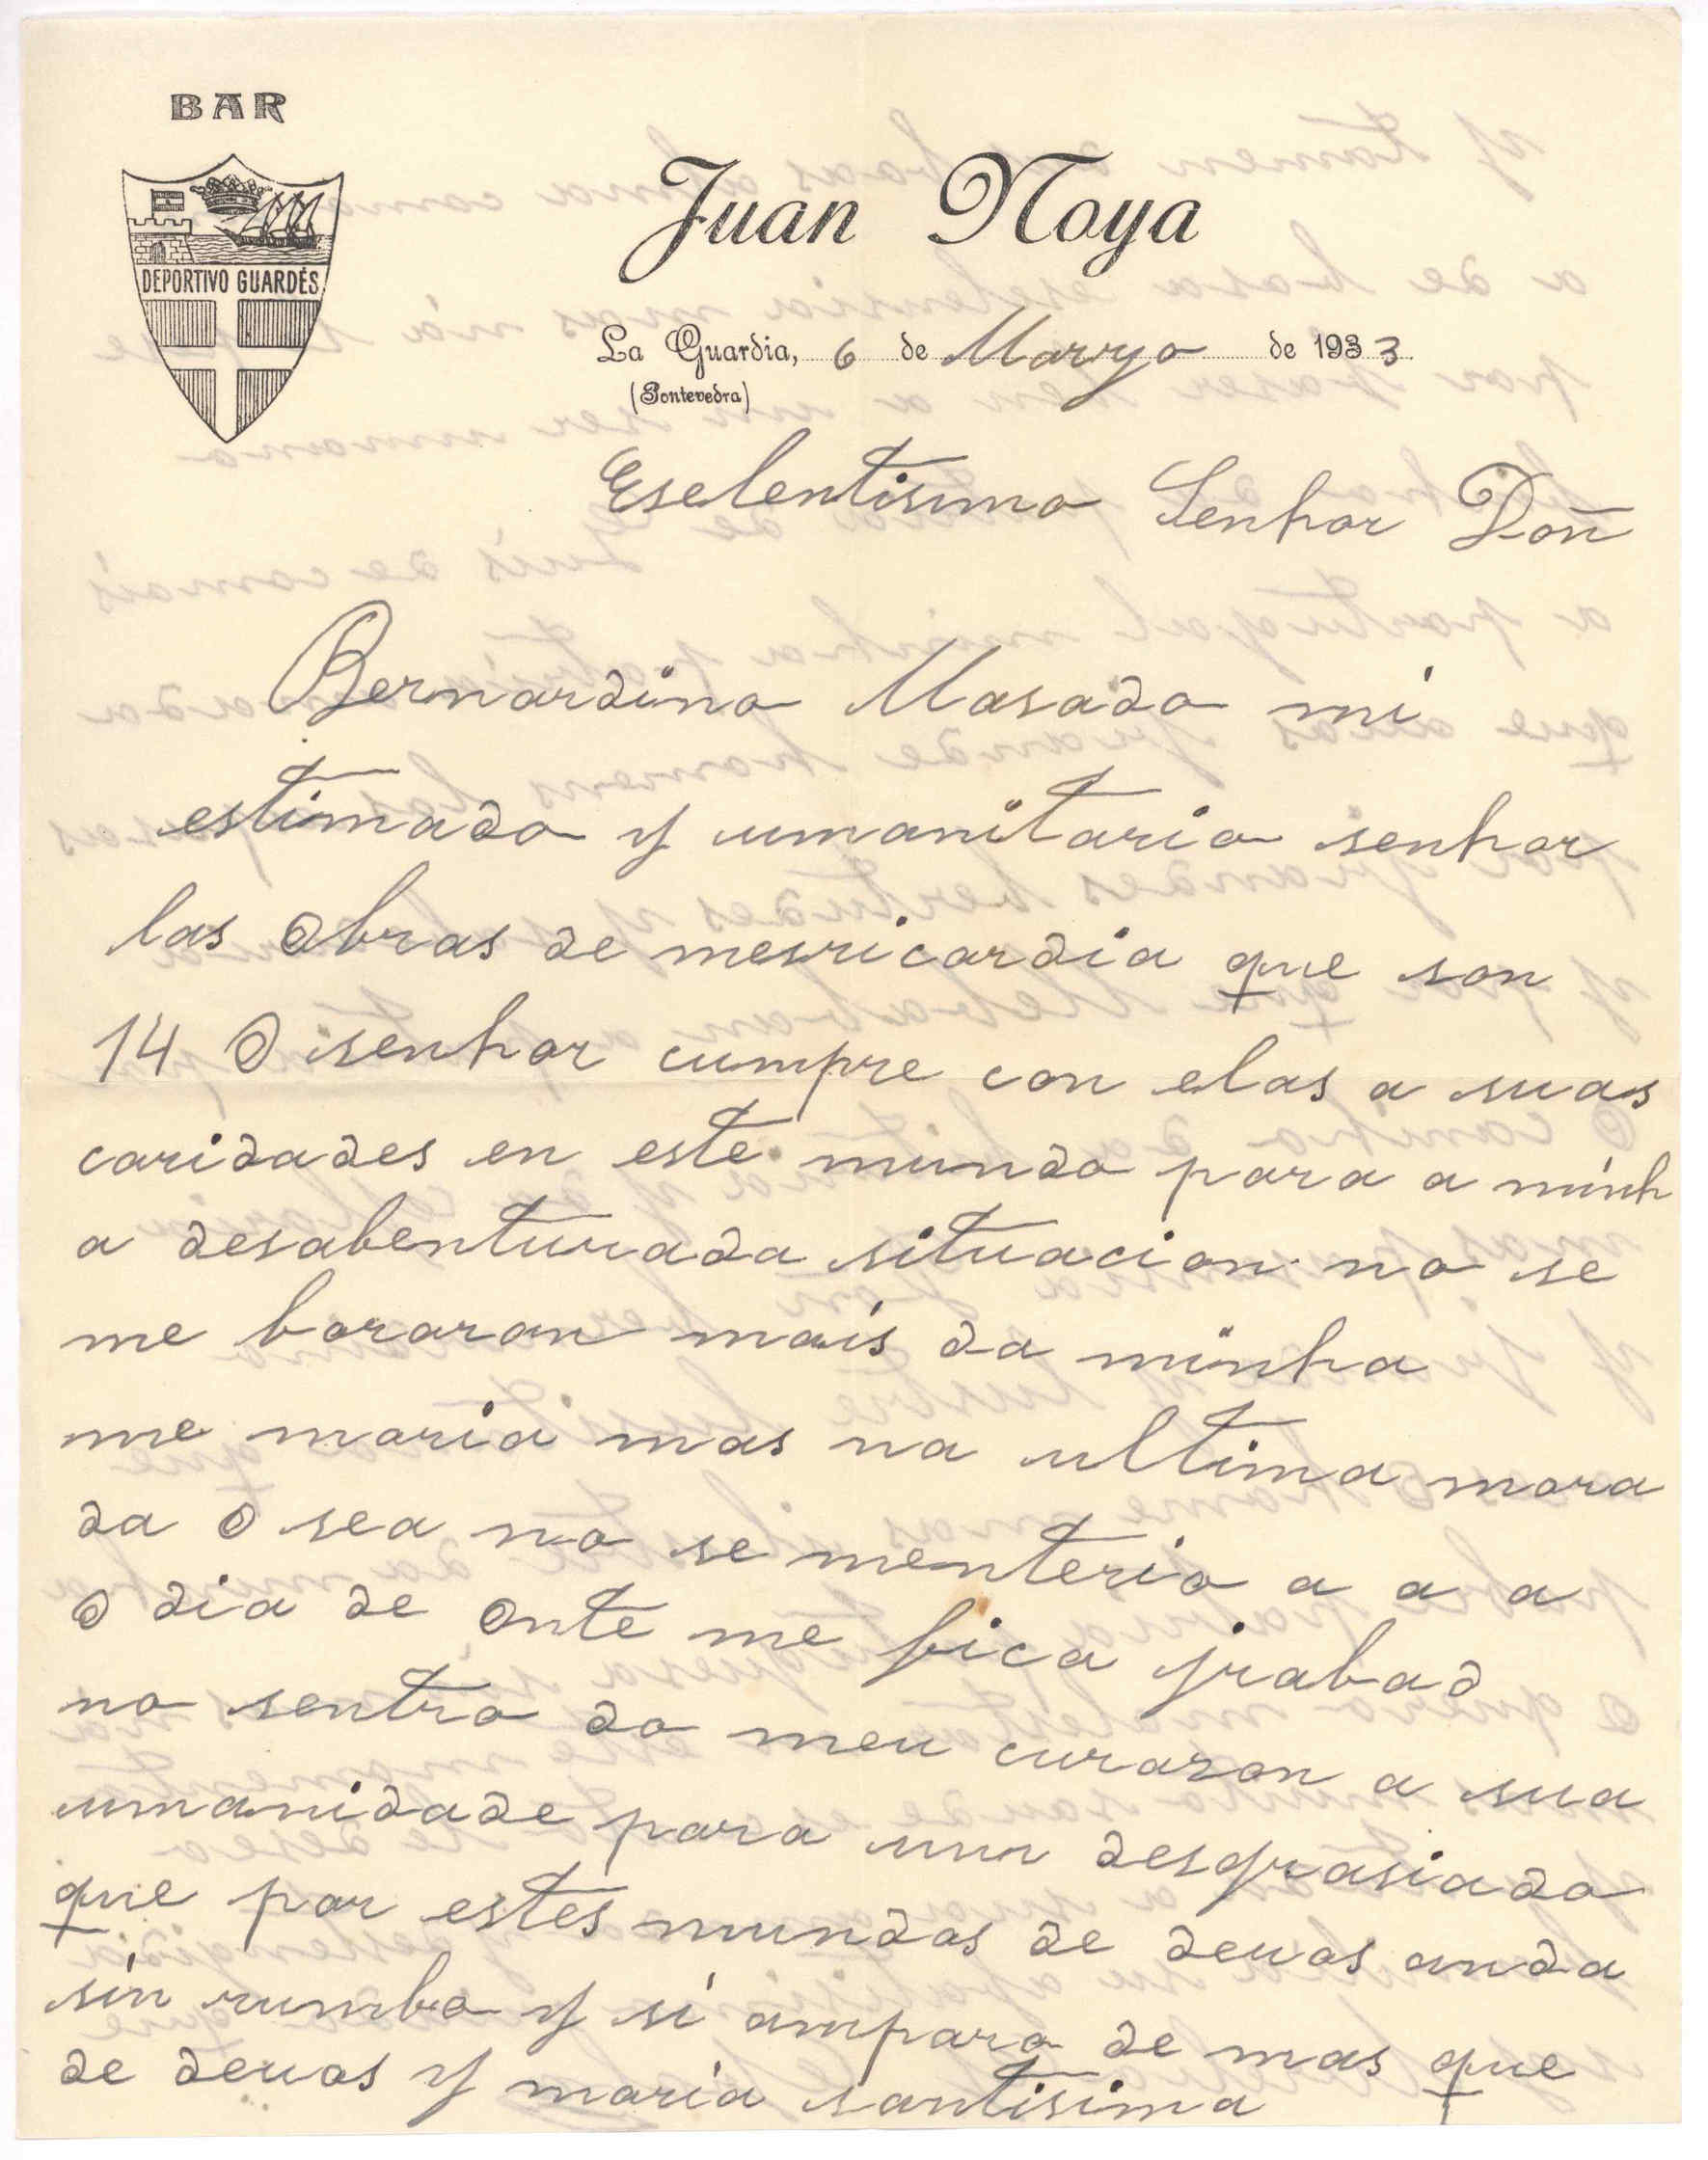 BAR
DEPORTIVO GUARDÉS
Juan Noya
La Guardia, 6 de Maryo de 1933
(Pontevedra)
Eselentisimo Senhor Don
Bernardino Masado mi
estimado y umanitario senhor
las obras de mesricordia que son
14 O senhor cumpre con elas a suas
caridades en este mundo para a minh
a desabenturada situacion no se
me boraran mais da minha
me moria mas na ultima mora
da o sea no se menterio a a a
o dia de onte me fica grabad
no sentro do meu curazon a sua
umanidade para un desgrasiado
que por estes mundos de deuos anda
sin rumbo y si amparo de mas que
de deuos y maria santisima